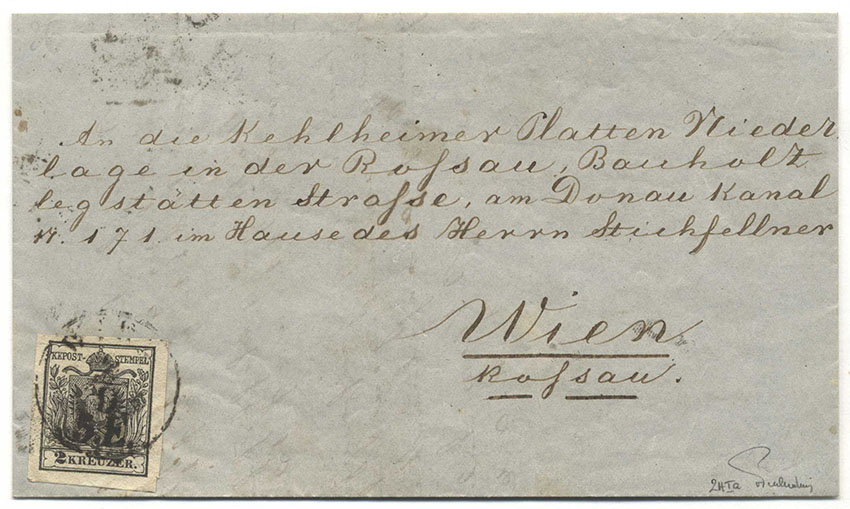 An die Kehlheimer Platten Nieder
lage in der Roſsau, Bauholz
legstätten Straſse, am Donau Kanal
N. 171. im Hause des Herrn Stichfellner
Wien
Roſsau.
KKPOST-STEMPEL
2 KREUZER.
2HIa